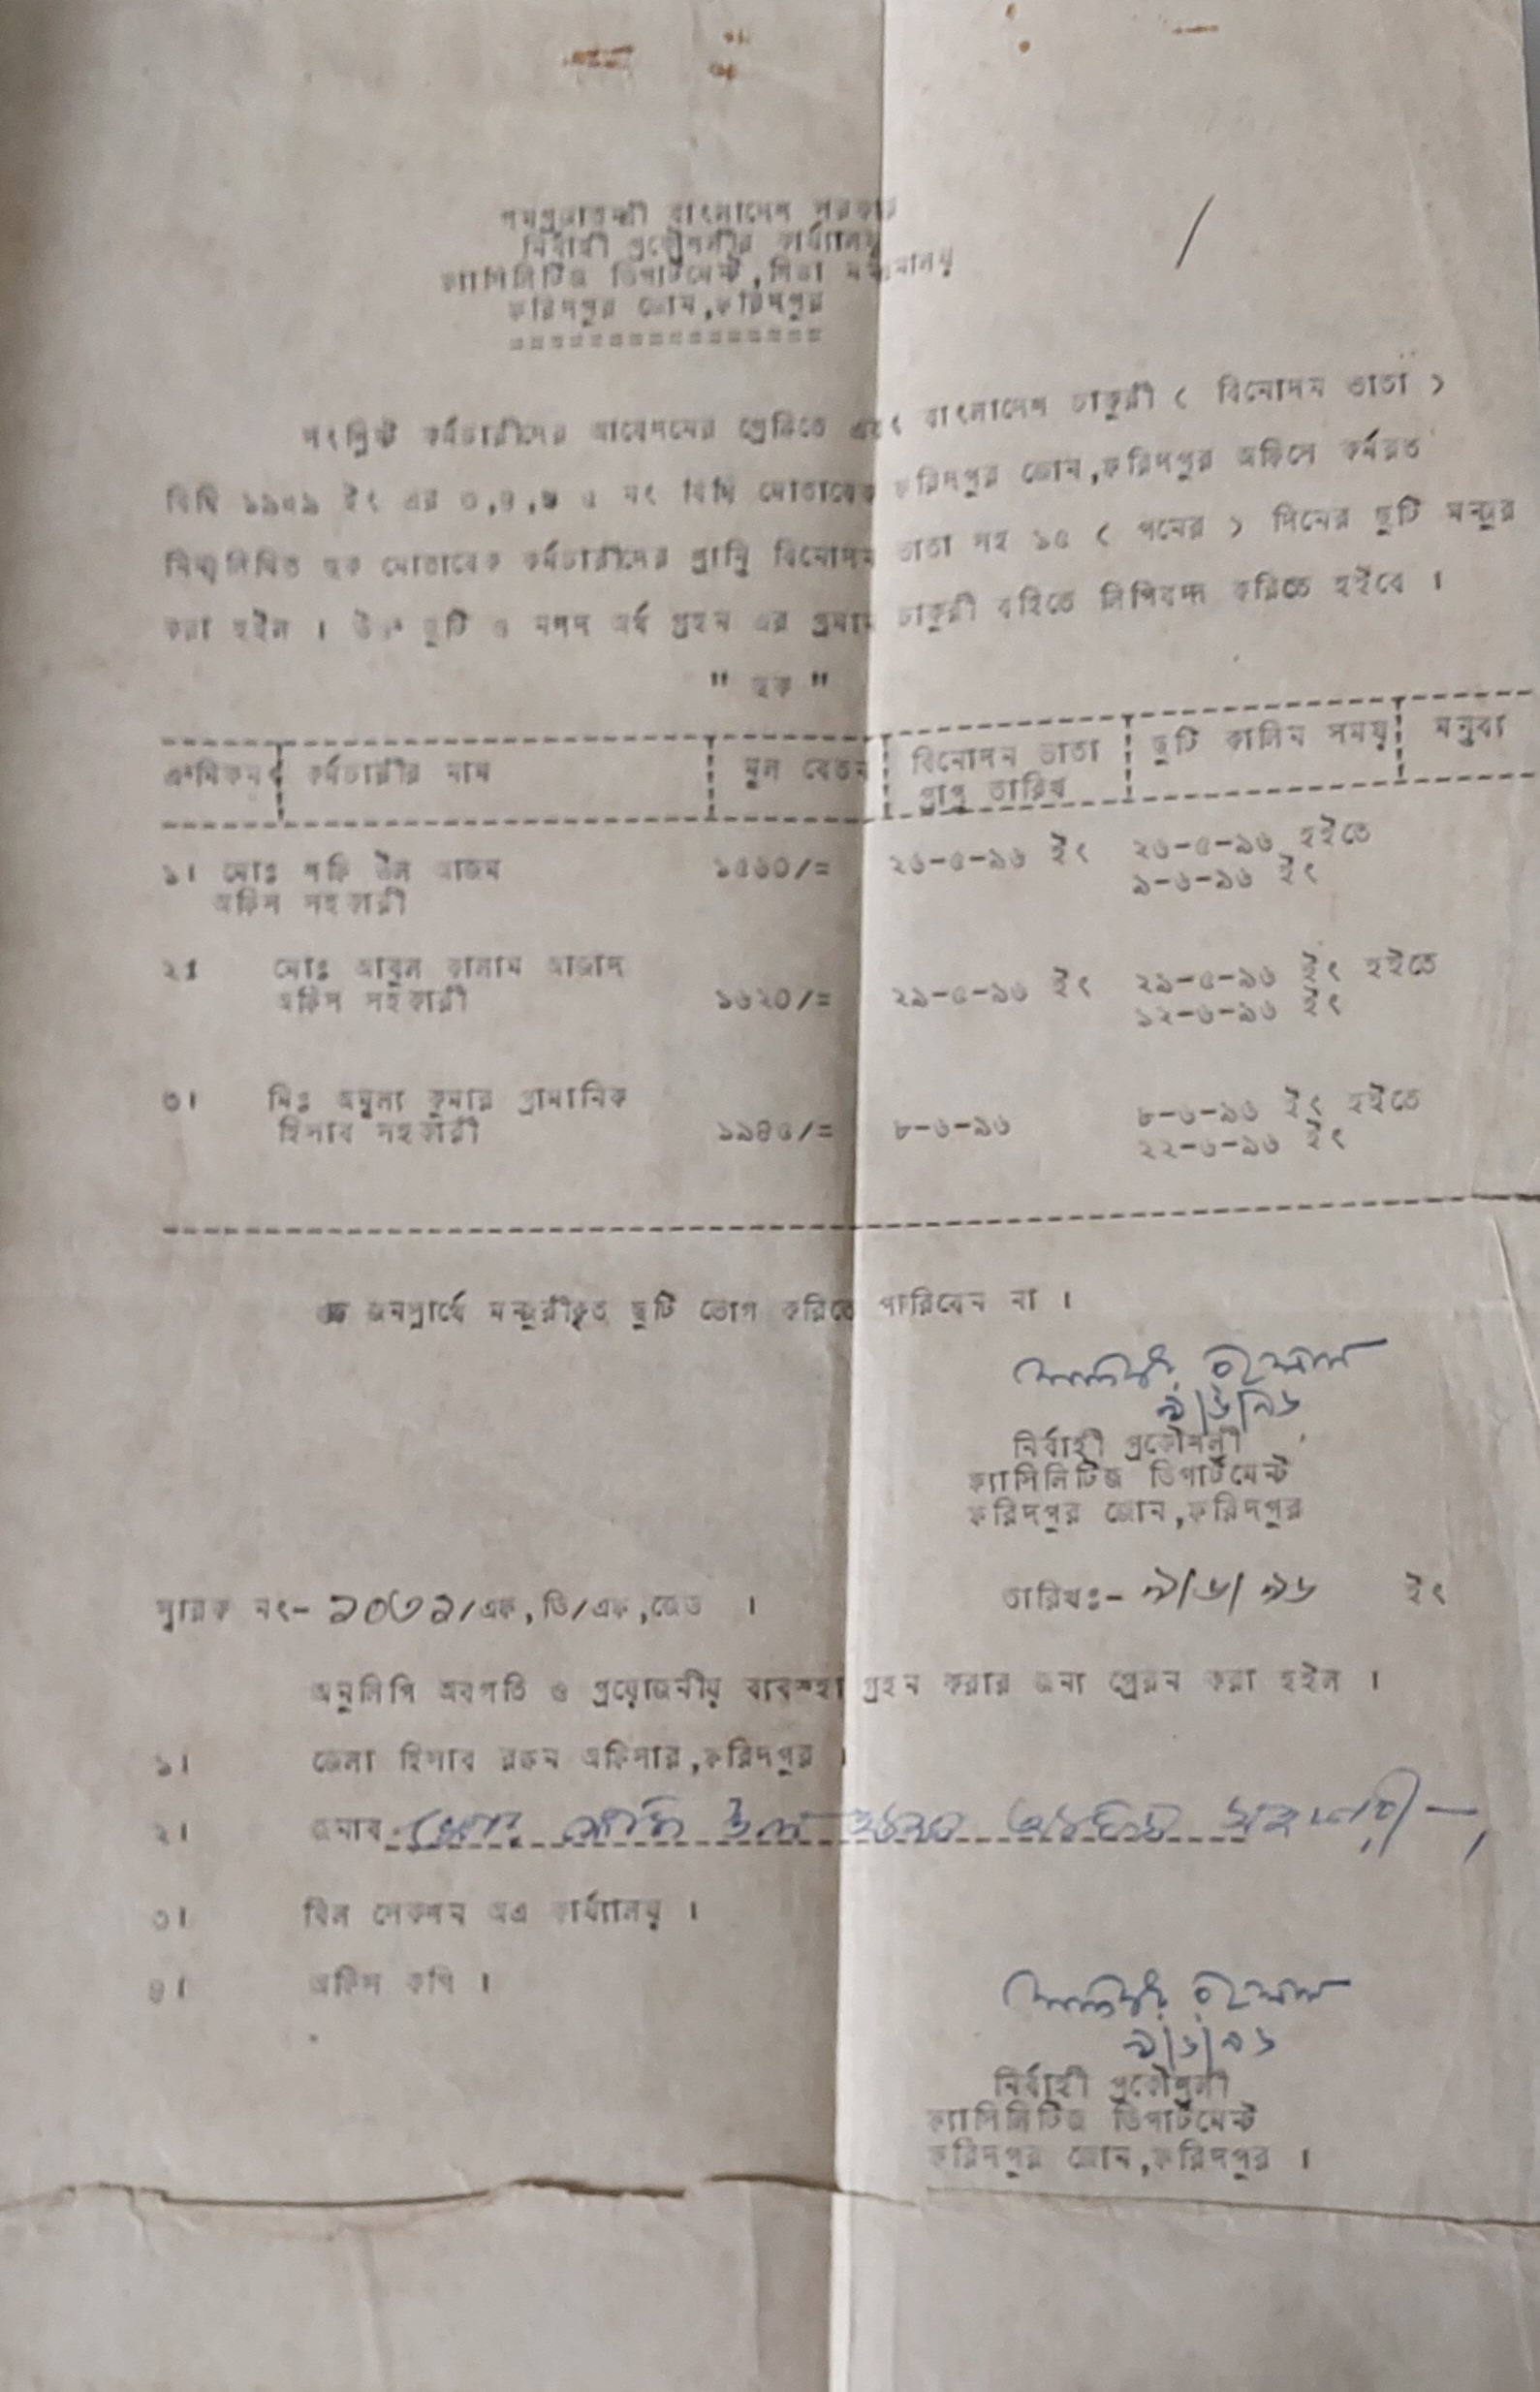 গণপ্রজাতন্ত্রী বাংলাদেশ সরকার
নির্বাহী প্রকৌশলীর কার্য্যালয়
ফ্যাসিলিটিজ ডিপার্টমেন্ট,শিক্ষা মন্ত্রণালয়
ফরিদপুর জোন,ফরিদপুর
================
সংশ্লিষ্ট কর্মচারীদের আবেদনের প্রেক্ষিতে এবং বাংলাদেশ চাকুরী ( বিনোদন ভাতা )
বিধি ১৯৭৯ ইং এর ৩,৪, ৫ নং বিধি মোতাবেক ফরিদপুর জোন,ফরিদপুর অফিসে কর্মরত
নিম্নলিখিত ছক মোতাবেক কর্মচারীদের শ্রান্তি বিনোদন ভাতা সহ ১৫ ( পনের ) দিনের ছুটি মন্জুর
করা হইল । উক্ত ছুটি ও নগদ অর্থ গ্রহন এর প্রমান চাকুরী বহিতে লিপিবদ্ধ করিতে হইবে ।
" ছক "
ক্রমিকনং কর্মচারীর নাম মূল বেতন বিনোদন ভাতা ছুটি কালিন সময় মন্তব্য
প্রাপ্ত তারিখ
১। মোঃ শফি উল আজম ১৫৬০/= ২৬-৫-৯৬ ইং ২৬-৫-৯৬ হইতে
অফিস সহকারী ৯-৬-৯৬ ইং
২ঃ মোঃ আবুল কালাম আজাদ ২৯-৫-৯৬ ইং হইতে
অফিস সহকারী ১৬২০/= ২৯-৫-৯৬ ইং ১২-৬-৯৬ ইং
৩। মিঃ অমূল্য কুমার প্রামানিক ৮-৬-৯৬ ইং হইতে
হিসাব সহকারী ১৯৪৫/= ৮-৬-৯৬ ২২-৬-৯৬ ইং
জনস্বার্থে মন্জুরীকৃত ছুটি ভোগ করিতে পারিবেন না ।
৯/৬/৯৬
নির্বাহী প্রকৌশলী
ফ্যাসিলিটিজ ডিপার্টমেন্ট
ফরিদপুর জোন,ফরিদপুর
স্মারক নং- ১০৩২/এফ,ডি/এফ,জেড । তারিখঃ- ৯/৬/৯৬ ইং
অনুলিপি অবগতি ও প্রয়োজনীয় ব্যবস্হা গ্রহন করার জন্য প্রেরন করা হইল ।
১। জেলা হিসাব রক্ষন অফিসার,ফরিদপুর ।
২। জনাব মোঃ শফি উল আজম অফিস সহকারী
৩। বিল সেকশন অত্র কার্য্যালয় ।
৪। অফিস কপি ।
৯/৬/৯৬
নির্বাহী প্রকৌশলী
ফ্যাসিলিটিজ ডিপার্টমেন্ট
ফরিদপুর জোন,ফরিদপুর ।